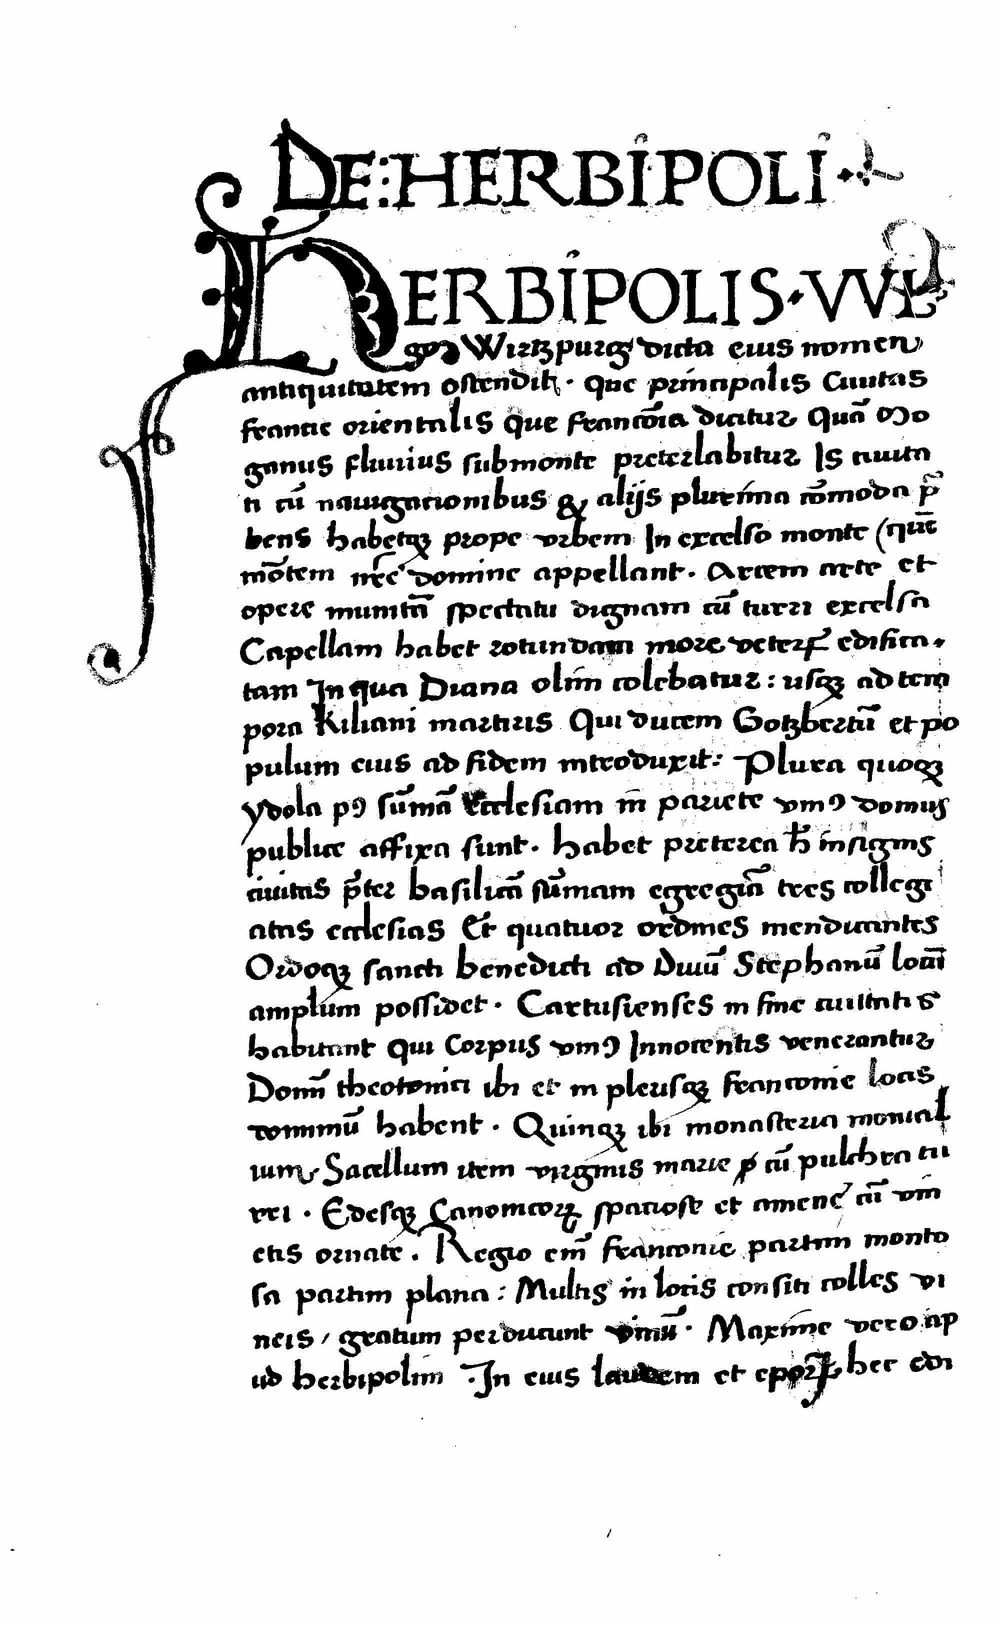 DE: HERBIPOLI ·
HERBIPOLIS · VVL
goꝛ Wirtzpurg dicta eius nomen
antiquitatem ostendit · Que principalis Ciuitas
francie orientalis que francōia dicitur Quā Mo
ganus fluuius submonte preterlabitur Is ciuita
ti cū nauigacionibus & alijs plurima cōmoda p̄
bens habetqꝫ prope vrbem In excelso monte (quē
mōtem nr̄e domine appellant · Arcem arte et
opere munitā spectatu dignam cū turri excelsa
Capellam habet rotundam more veterꝝ edifica·
tam In qua Diana olim colebatur : usqꝫ ad tem
pora Kiliani martiris Qui ducem Gotzbertū et po
pulum eius ad fidem introduxit : Plura quoqꝫ
ydola pꝰ sūmā Ecclesiam in pariete vniꝰ domus
publice affixa sunt · habet preterea h̄ insignis
ciuitas p̄ter basilicā sūmam egregiā tres collegi
atas ecclesias Et quatuor ordines mendicantes
Ordoqꝫ sancti benedicti ad Diuū Stephanū locū
amplum possidet · Cartusienses in fine ciuitatis
habitant Qui Corpus vniꝰ Innocentis venerantur
Domī theotonici ibi et in plerisqꝫ franconie locis
dominiū habent · Quinqꝫ ibi monasteria monial
ium Sacellum item virginis marie cū pulchra tu
rri · Edesqꝫ Canonicorꝝ spaciose et amene cū vin
etis ornate · Regio em̄ franconie partim monto
sa partim plana : Multis in locis consiti colles vi
neis / gratum perducunt vinū · Maxime vero ap
ud herbipolim · In eius laudem et eporꝝ hec edi